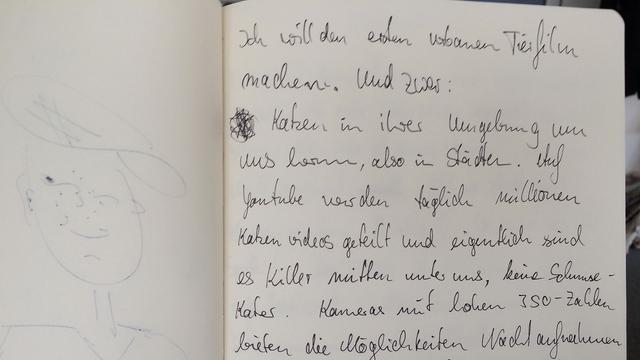 Ich will den ersten urbanen Tierfilm
machen. Und zwar:
Katzen in ihrer Umgebung um
uns herum, also in Städten. Auf
Youtube werden täglich millionen
Katzenvideos geteilt und eigentlich sind
es Killer mitten unter uns, keine Schmuse-
Kater. Kameras mit hohen ISO-Zahlen
bieten die Möglichkeiten Nachtaufnahmen